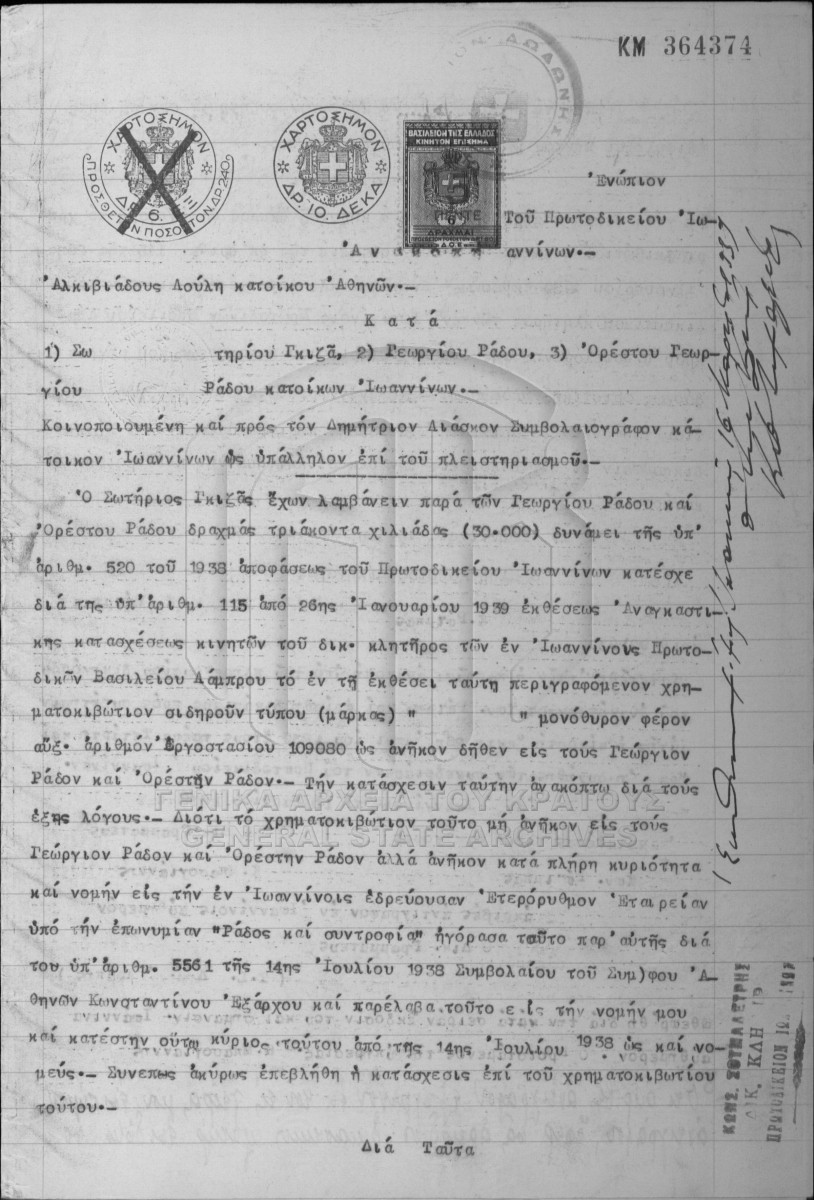 ΚΜ 364374
ΧΑΡΤΟΣΗΜΟΝ
ΔΡ. 6.
ΠΡΟΣΘΕΤΟΝ ΠΟΣΟΣΤΟΝ ΔΡ. 240
ΧΑΡΤΟΣΗΜΟΝ
ΔΡ. 10. ΔΕΚΑ
ΒΑΣΙΛΕΙΟΝ ΤΗΣ ΕΛΛΑΔΟΣ
ΚΙΝΗΤΟΝ ΕΠΙΣΗΜΑ
ΠΕΝΤΕ
ΔΡΑΧΜΑΙ
Ἐνώπιον
Τοῦ Πρωτοδικείου Ἰω-
ἀννίνων.-
Ἀλκιβιάδους Λούλη κατοίκου Ἀθηνῶν.-
Κατά
1) Σω τηρίου Γκιζᾶ, 2) Γεωργίου Ράδου, 3) Ὀρέστου Γεωρ-
γίου Ράδου κατοίκων Ἰωαννίνων.-
Κοινοποιουμένη καί πρός τόν Δημήτριον Διάσκον Συμβολαιογράφον κά-
τοικον Ἰωαννίνων ὡς ὑπάλληλον ἐπί τοῦ πλειστηριασμοῦ.-
Ὁ Σωτήριος Γκιζᾶς ἔχων λαμβάνειν παρά τῶν Γεωργίου Ράδου καί
Ὀρέστου Ράδου δραχμάς τριάκοντα χιλιάδας (30.000) δυνάμει τῆς ὑπ'
ἀριθμ. 520 τοῦ 1938 ἀποφάσεως τοῦ Πρωτοδικείου Ἰωαννίνων κατέσχε
διά της ὑπ'ἀριθμ. 115 ἀπό 26ης Ἰανουαρίου 1939 ἐκθέσεως Ἀναγκαστι-
κης κατασχέσεως κινητῶν τοῦ δικ. κλητῆρος τῶν ἐν Ἰωαννίνοις Πρωτο-
δικῶν Βασιλείου Λάμπρου τό ἐν τῇ ἐκθέσει ταύτῃ περιγραφόμενον χρη-
ματοκιβώτιον σιδηροῦν τύπου (μάρκας) " " μονόθυρον φέρον
αὔξ. ἀριθμόν Ἐργοστασίου 109080 ὡς ἀνῆκον δῆθεν εἰς τούς Γεώργιον
Ράδον καί Ὀρέστην Ράδον.- Τήν κατάσχεσιν ταύτην ἀνακόπτω διά τούς
ἑξης λόγους.- Διότι τό χρηματοκιβώτιον τοῦτο μή ἀνῆκον εἰς τούς
Γεώργιον Ράδον καί Ὀρέστην Ράδον ἀλλά ἀνῆκον κατά πλήρη κυριότητα
καί νομήν εἰς τήν ἐν Ἰωαννίνοις ἑδρεύουσαν Ἑτερόρυθμον Ἑταιρείαν
ὑπό τήν ἐπωνυμίαν "Ράδος καί συντροφία" ἠγόρασα ταῦτο παρ'αὐτῆς διά
του ὑπ'ἀριθμ. 5561 τῆς 14ης Ἰουλίου 1938 Συμβολαίου τοῦ Συμ)φου Ἀ-
θηνῶν Κωνσταντίνου Ἐξάρχου καί παρέλαβα τοῦτο ε ἰς τήν νομήν μου
καί κατέστην οὕτω κύριος τούτου ἀπό τῆς 14ης Ἰουλίου 1938 ὡς καί νο-
μεύς.- Συνεπως ἀκύρως ἐπεβλήθη ἡ κατάσχεσις ἐπί τοῦ χρηματοκιβωτίου
τούτου.-
Διά Ταῦτα
ΓΕΝΙΚΑ ΑΡΧΕΙΑ ΤΟΥ ΚΡΑΤΟΥΣ
GENERAL STATE ARCHIVES